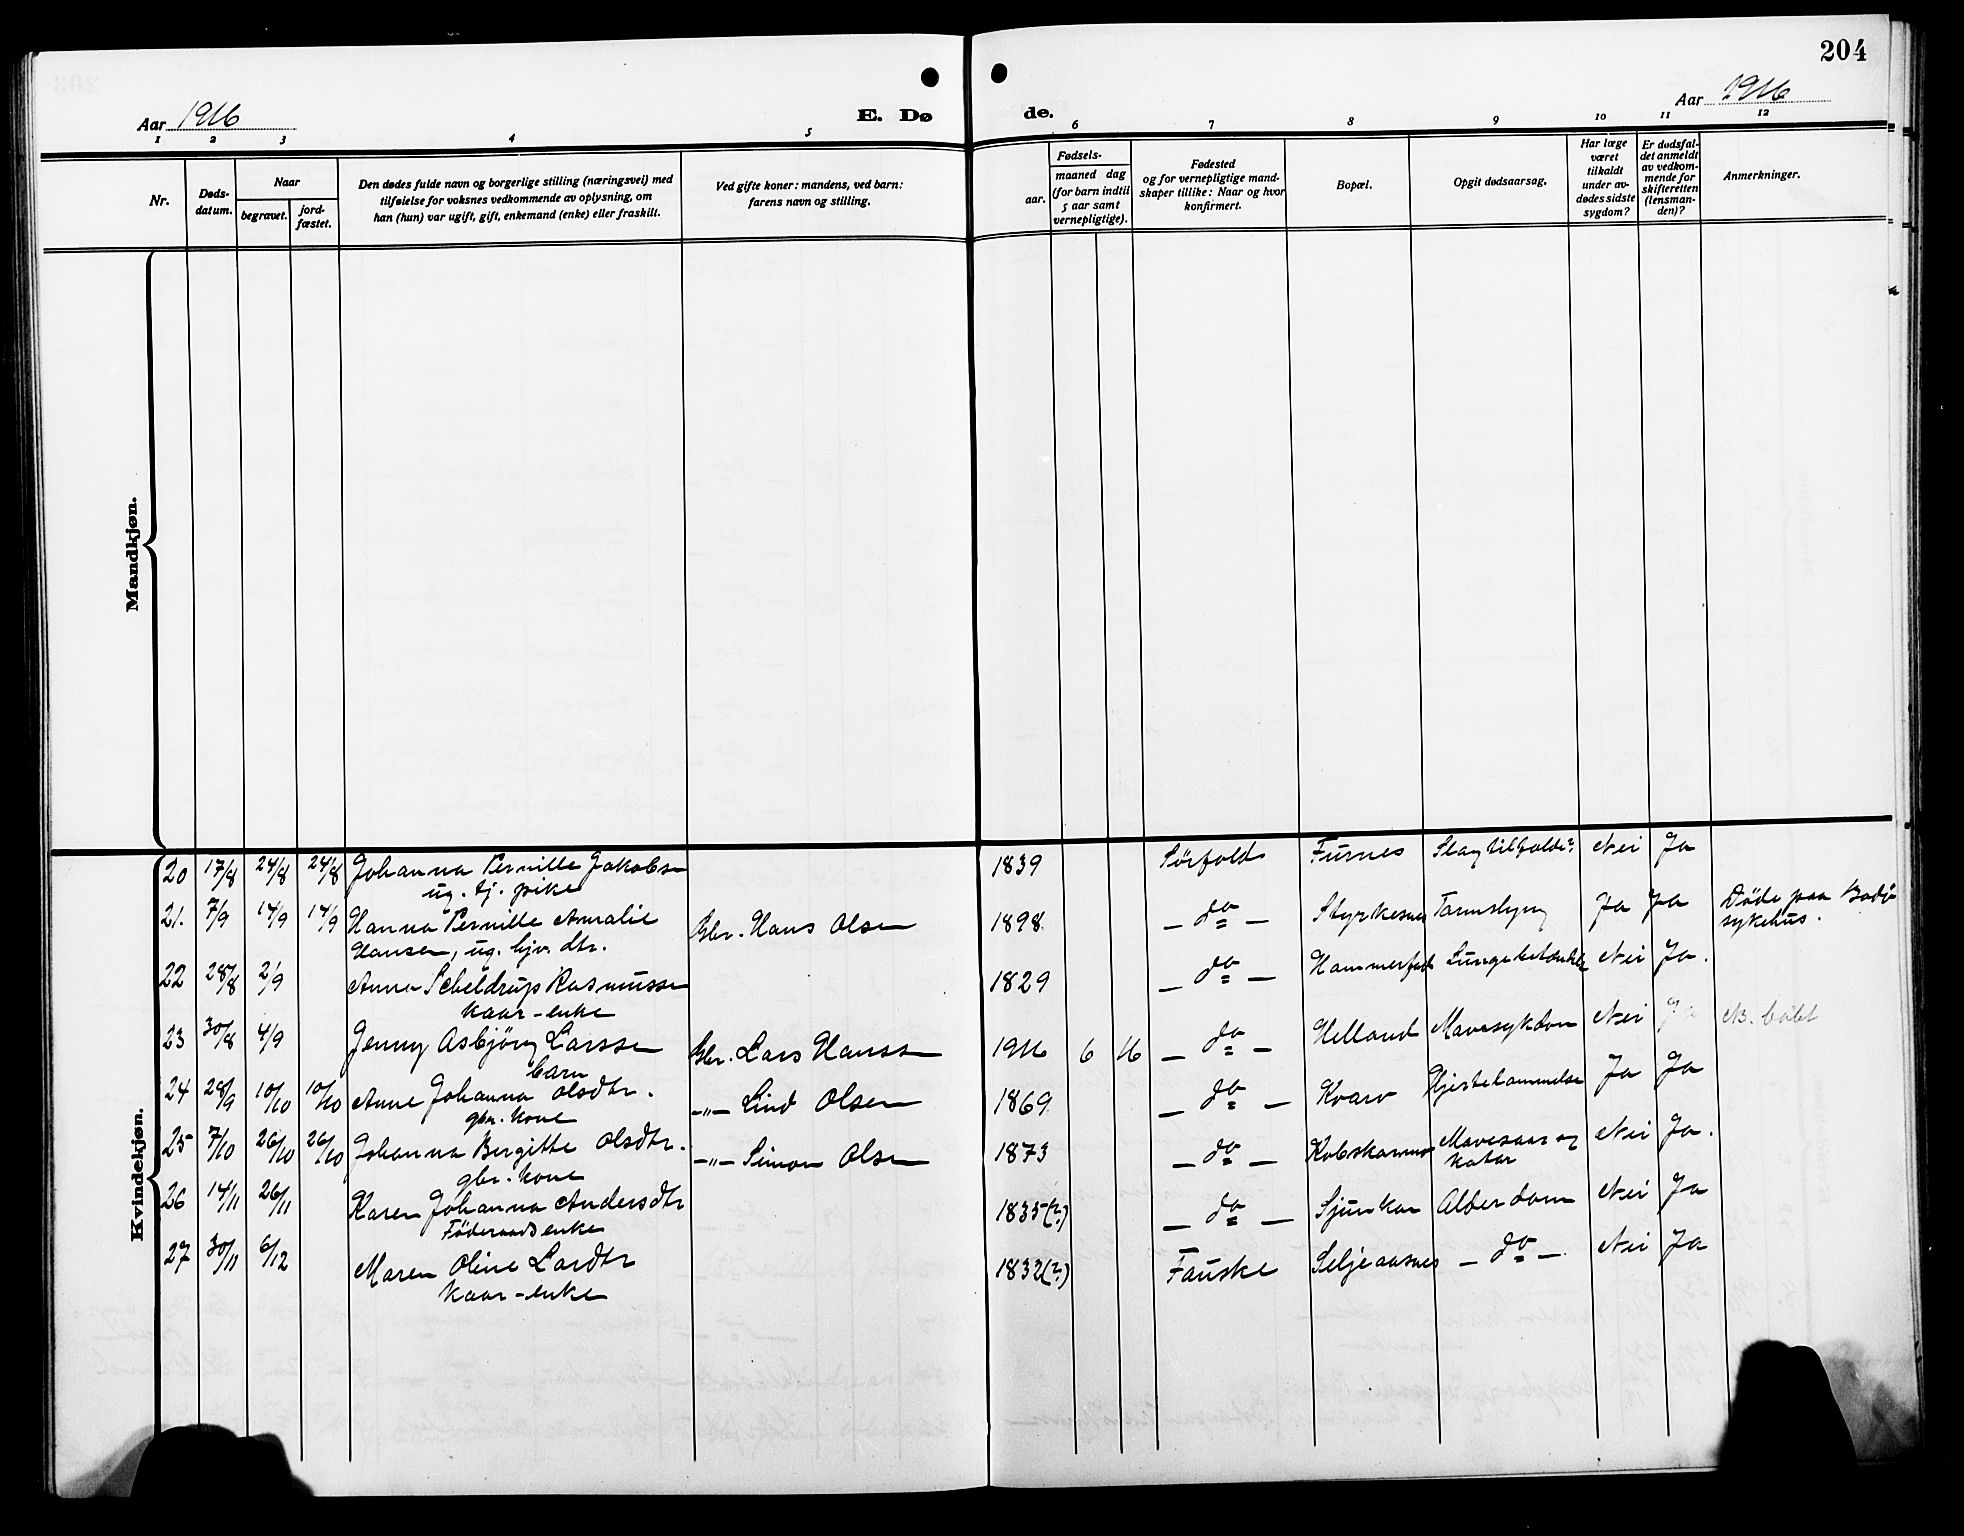 204
Aar 1916
E. Dø
de.
Aar 1916
1 2 3 4 5 6 7 8 9 10 11 12
Nr.
Døds-
datum.
Naar
begravet.
jord-
fæstet.
Den dødes fulde navn og borgerlige stilling (næringsvei) med
tilføielse for voksnes vedkommende av oplysning, om
han (hun) var ugift, gift, enkemand (enke) eller fraskilt.
Ved gifte koner: mandens, ved barn:
farens navn og stilling.
Fødsels-
aar.
maaned dag
(for barn indtil
5 aar samt
vernepligtige).
Fødested
og for vernepligtige mand-
skaper tillike: Naar og hvor
konfirmert.
Bopæl.
Opgit dødsaarsag.
Har læge
været
tilkaldt
under av-
dødes sidste
sygdom?
Er dødsfal-
det anmeldt
av vedkom-
mende for
skifteretten
(lensman-
den)?
Anmerkninger.
Mandkjøn.
Kvindekjøn.
20 17/8 24/8 24/8 Johanna Pernille Jakobsen 1839 Sörfold Furnes Slagtilfælde? Nei Ja
ug. tj. pike
21. 7/9 14/9 14/9 Hanna Pernille Amalie Gbr. Hans Olsen 1898 – do – Styrkesnes Tarmslyng Ja Ja Döde paa Bodö
Hansen, ug. hjv. dtr. sykehus.
22 28/8 2/9 Anna Scheldrup Rasmussen 1829 – do – Hammerfald Lungebetændelse Nei Ja.
Kaar-enke
23 30/8 4/9 Jenny Asbjörg Larssen Gbr. Lars Hanssen 1916 6 16 – do – Helland Mavesykdom Nei Ja
barn
24 28/9 10/10 10/10 Anne Johanna Olsdtr. –"– Lind Olsen 1869 – do – Kvarv Hjertelammelse Ja Ja
gbr. kone
25 7/10 26/10 26/10 Johanna Bergitte Olsdtr. –"– Simon Olsen 1873 – do – Kobskarmo Mavesaar og Nei Ja.
gbr. kone katar
26 14/11 26/11 Karen Johanna Andersdtr 1835(?) – do – Sjunkan Alderdom Nei Ja
Föderaadsenke
27 30/11 6/12 Maren Oline Larsdtr 1832(?) Fauske Seljeaasnes – do – Nei Ja
Kaar-enke